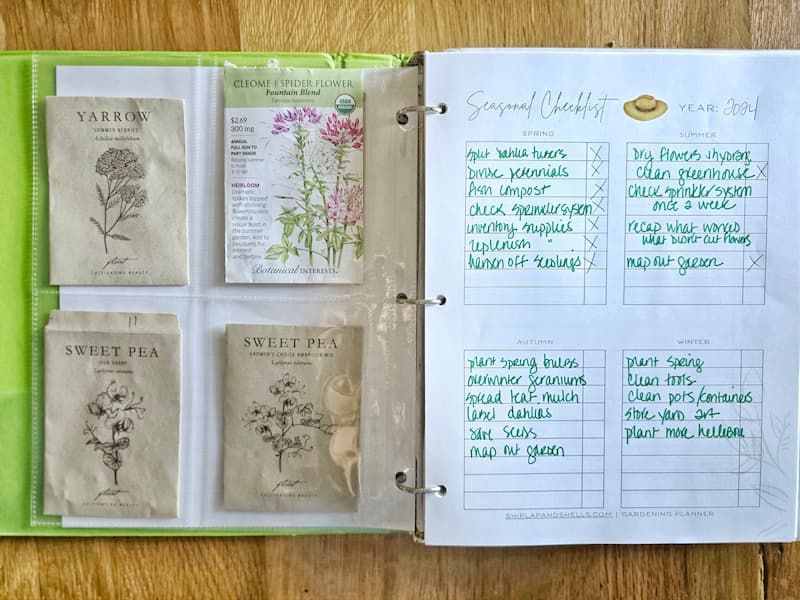 YARROW
SUMMER BERRIES
Achillea millefolium
CULTIVATING BEAUTY
CLEOME | SPIDER FLOWER
Fountain Blend
USDA
ORGANIC
$2.69
300 mg
ANNUAL
FULL SUN TO
PART SHADE
HEIRLOOM
Dramatic
spikes topped
with stunning
create a
visual feast in
the summer
garden. Add to
bouquets for
Botanical INTERESTS
11
SWEET PEA
OUR HARRY
Lathyrus odoratus
CULTIVATING BEAUTY
SWEET PEA
GROWER'S CHOICE AMBROSIA MIX
Lathyrus odoratus
CULTIVATING BEAUTY
Seasonal Checklist
YEAR: 2024
SPRING
split dahlia tubers X
Divide perennials X
fish compost X
check sprinkler system X
inventory supplies X
replenish " X
harden off seedlings X
SUMMER
Dry flowers + hydrang
clean greenhouse X
check sprinkler system
once a week
recap what works
what didn't cut flowers
map out garden X
AUTUMN
plant spring bulbs
overwinter geraniums
spread leaf mulch
label dahlias
save seeds
map out garden
WINTER
plant spring
clean tools
clean pots/containers
store yard art
plant more hellebore
SHIPLAPANDSHELLS.COM | GARDENING PLANNER